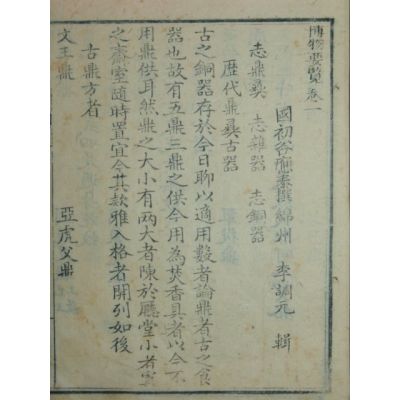 博物要覽卷一
國初谷應泰撰綿州 李調元 輯
志鼎彞 志雜器 志銅器
歷代鼎彞古器
古之銅器存於今日聊以適用數者論鼎者古之食
器也故有五鼎三鼎之供今用為焚香具者以今不
用鼎供耳然鼎之大小有兩大者陳於廳堂小者寘
之齋室隨時置宜今其款雅入格者開列如後
古鼎方者
文王鼎 亞虎父鼎